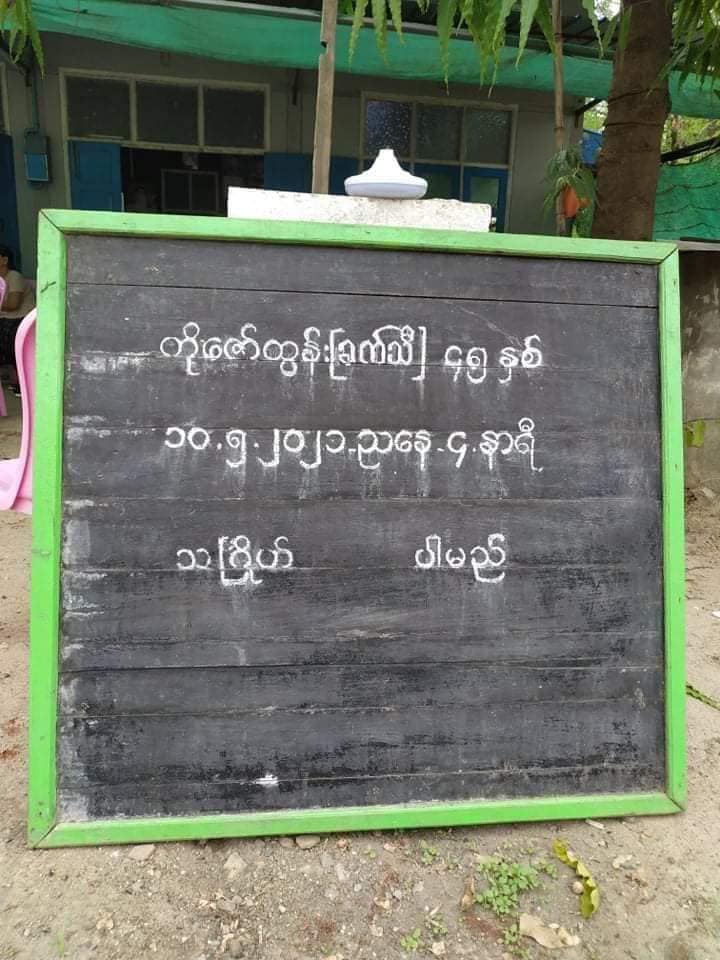 ကိုဇော်ထွန်း[ခုတ်သီ] ၄၅ နှစ်
၁၀.၅.၂၀၂၁.ညနေ.၄.နာရီ
သင်္ဂြိုဟ် ပါမည်